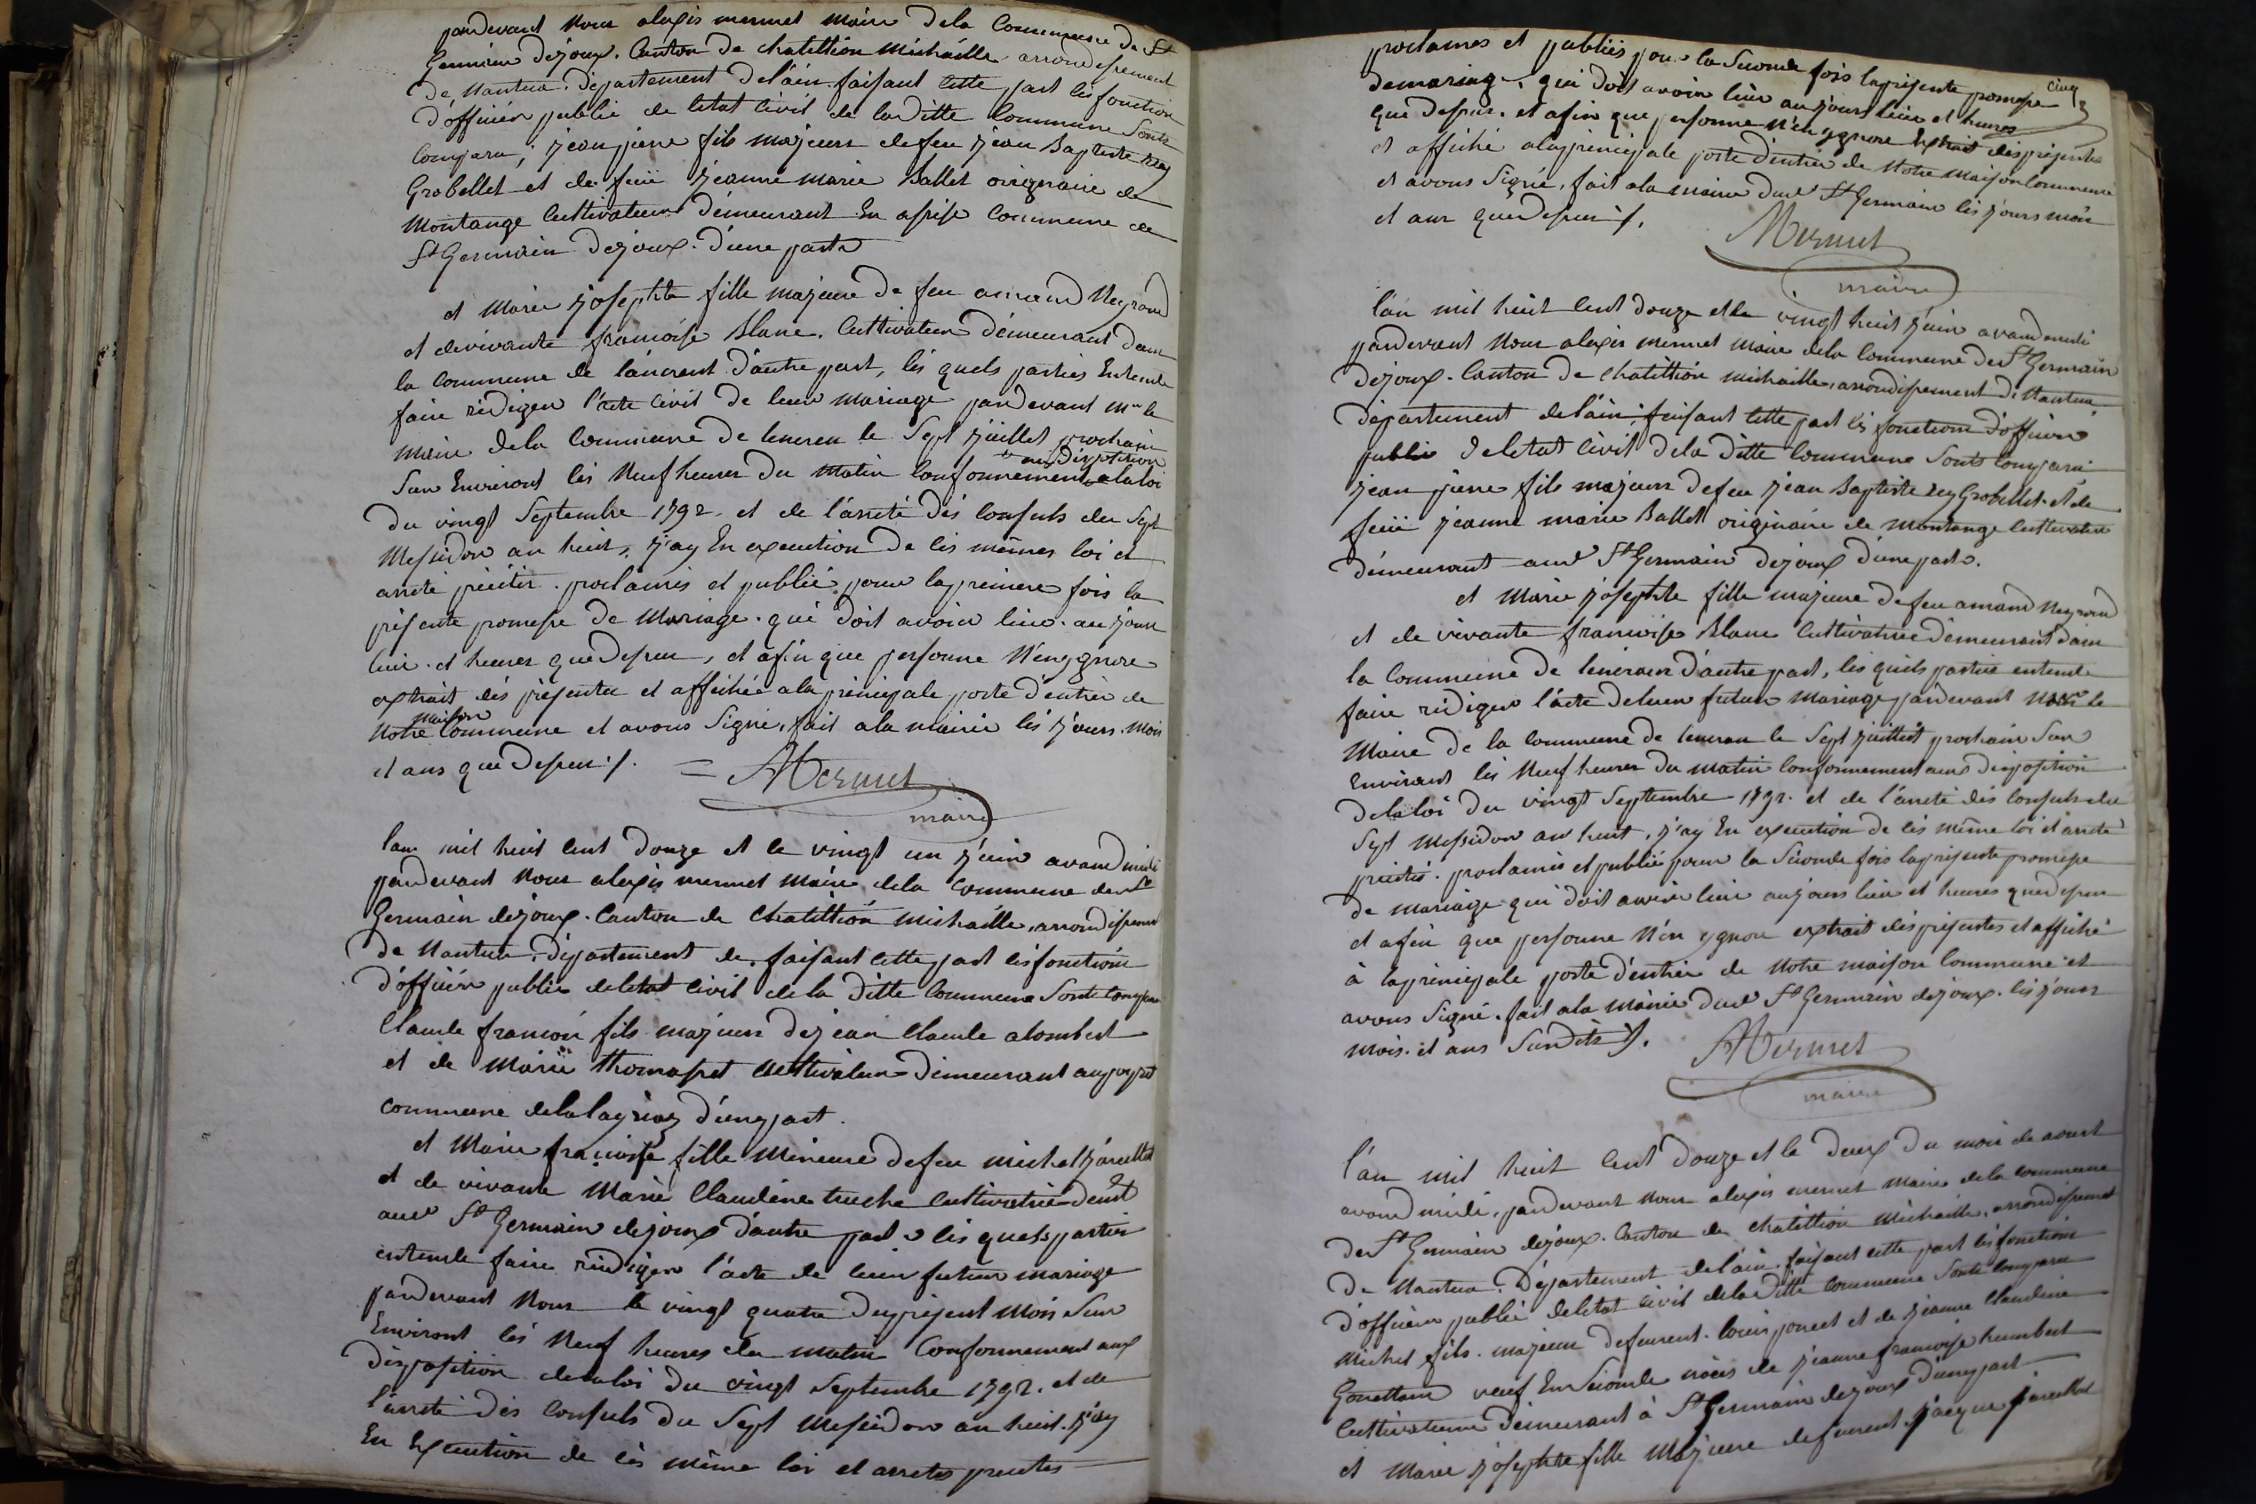 pardevant nous alexis mermet maire dela Commeune de St
Germain dejoux. Canton de chatillion michaille arrondissement
De Nantua. département delâin. faisant cette part les fonction
d'officiér public de letat civil de la ditte Commune Sonts
Comparu, jean piere fils majeurs defeu jean Baptiste Rey
Grobellet et de feüe jeanne marie Ballet originaire de
Montange Cultivateurs démeurant En assise Commune de
St Germain dejoux. d'une parte
et Marie josephte fille majeure de feu amand Neyroud
et devivante francoise Blanc. Cultivateur démeurant dans
la Commune de lancrant d'autre part, lés quels parties Entende
faire rédiger l'acte civil de leur mariage pardevant Mr le
maire dela Commune de lencren le Sept juillet prochain
Sur Environt lés Neuf heures du matin Conformement aux disposition ala loi
du vingt Septembre 1792. et de l'arreté dés Consuls du Sept
Messidor an huit, j'ay En execution de cés mêmes loi et
arreté précités. proclamés et publié pour la premiere fois la
présente promesse de Mariage. qui doit avoir lieu. au jours
lieu. et heures quedessus, et afin que personne N'enygnore
extrait dés présentes et affichée ala principale porte d'entrée de
Notre maison Commune et avons Signé, fait ala mairie lés jours. Mois
et ans que dessus ./. = AMermet
maire
lan mil huit cent Douze et le vingt un juin avand midi
pardevant Nous alexis mermet maire dela Commune de St
Germain dejoux. Canton de Chatillion michaille, arrondissement
De Nantua. département de. faisant cette part lés fonctions
d'officiér public deletat civil de la ditte Commune Sonts Comparu
Claude francois fils majeurs dejean Claude alombert
et de Marie thomasset Cultivateur démeurant au poyzat
Commune delalayriaz d'unepart.
et Marie francoise fille Mineure defeu michel jaeullet
et de vivante Marie Claudine truche Cultivatrice demt
aud St Germain dejoux d'autre part lés quels parties
entende faire rédiger l'acte de leur futur mariage
pardevant Nous le vingt quatre duprésent Mois Sur
Environt lés Neuf heures du matin Conformement aux
disposition delaloi du vingt Septembre 1792. et de
l'arreté dés Consuls du Sept Messidor an huit. j'ay
En Execution de cés même loi et arretes precités
cinq
proclames et publiés pour la Séconde fois laprésente promesse
demariage, qui doit avoir lieu au jours lieu et heures
que dessus. et afin que personne N'en ygnore Extrait desprésentes
et affiché alaprincipale porte d'entrée de Notre maison Commune
et avons Signé, fait ala mairie dud St Germain lés jours mois
et ans quedessus ./.
AMermet
maire
l'an mil huit cent douze et le vingt huit juin avand midi
pardevant Nous alexis mermet maire dela Commune de St Germain
dejoux. Canton de chatillion michaille, arrondissement de Nantua.
département delâin, faisant cette part lés fonctions d'officier
public deletat civil dela ditte Commune Sonts Comparu
jean piere fils majeurs defeu jean Baptiste rey Grobellet. et de
feüe jeanne marie Ballet originaire de Montange Cultivateur
démeurant aud St Germain dejoux d'une parte.
et Marie josephte fille majeure defeu amand Neyroud
et de vivante francoise Blanc Cultivatrice démeurant dans
la Commune de lencran d'autre part, lés quels parties entende
faire rédiger l'acte deleur futur mariage pardevant Mr le
Maire de la Commune de lencran le Sept juillet prochain Sur
Environt lés Neuf heures du matin Conformement aux disposition
delaloi du vingt Septembre 1792. et de l'arreté dés Consuls du
Sept Messidor an huit, j'ay En execution de cés même loi et arreté
précités. proclamés et publié pour la Séconde fois laprésente promesse
de mariage qui doit avoir lieu aujours lieu et heures quedessus
et afin que personne N'en ygnore extrait dés présentes et affiché
à laprincipale porte d'entrée de Notre maison Commune et
avons Signé. fait ala mairie dud St Germain dejoux. lés jours
mois. et ans Susdits ./. AMermet
maire
l'an mil huit cent Douze et le deux du mois de aoust
avand midi, pardevant Nous alexis mermet maire dela commune
de St Germain dejoux. Canton de chatillion Michaille, arrondissement
De Nantua. Département delâin. faisant cette part lés fonctions
d'officiér public deletat civil dela ditte commune Sonts Comparu
Michel fils. majeur defeurent. louis poncet et de jeanne Claudine
veuf En Séconde noces de jeanne francoise humbert
Cultivateur démeurant à St Germain dejoux d'unepart
et Marie josephte fille Majeure defeurent jacque jaeullet